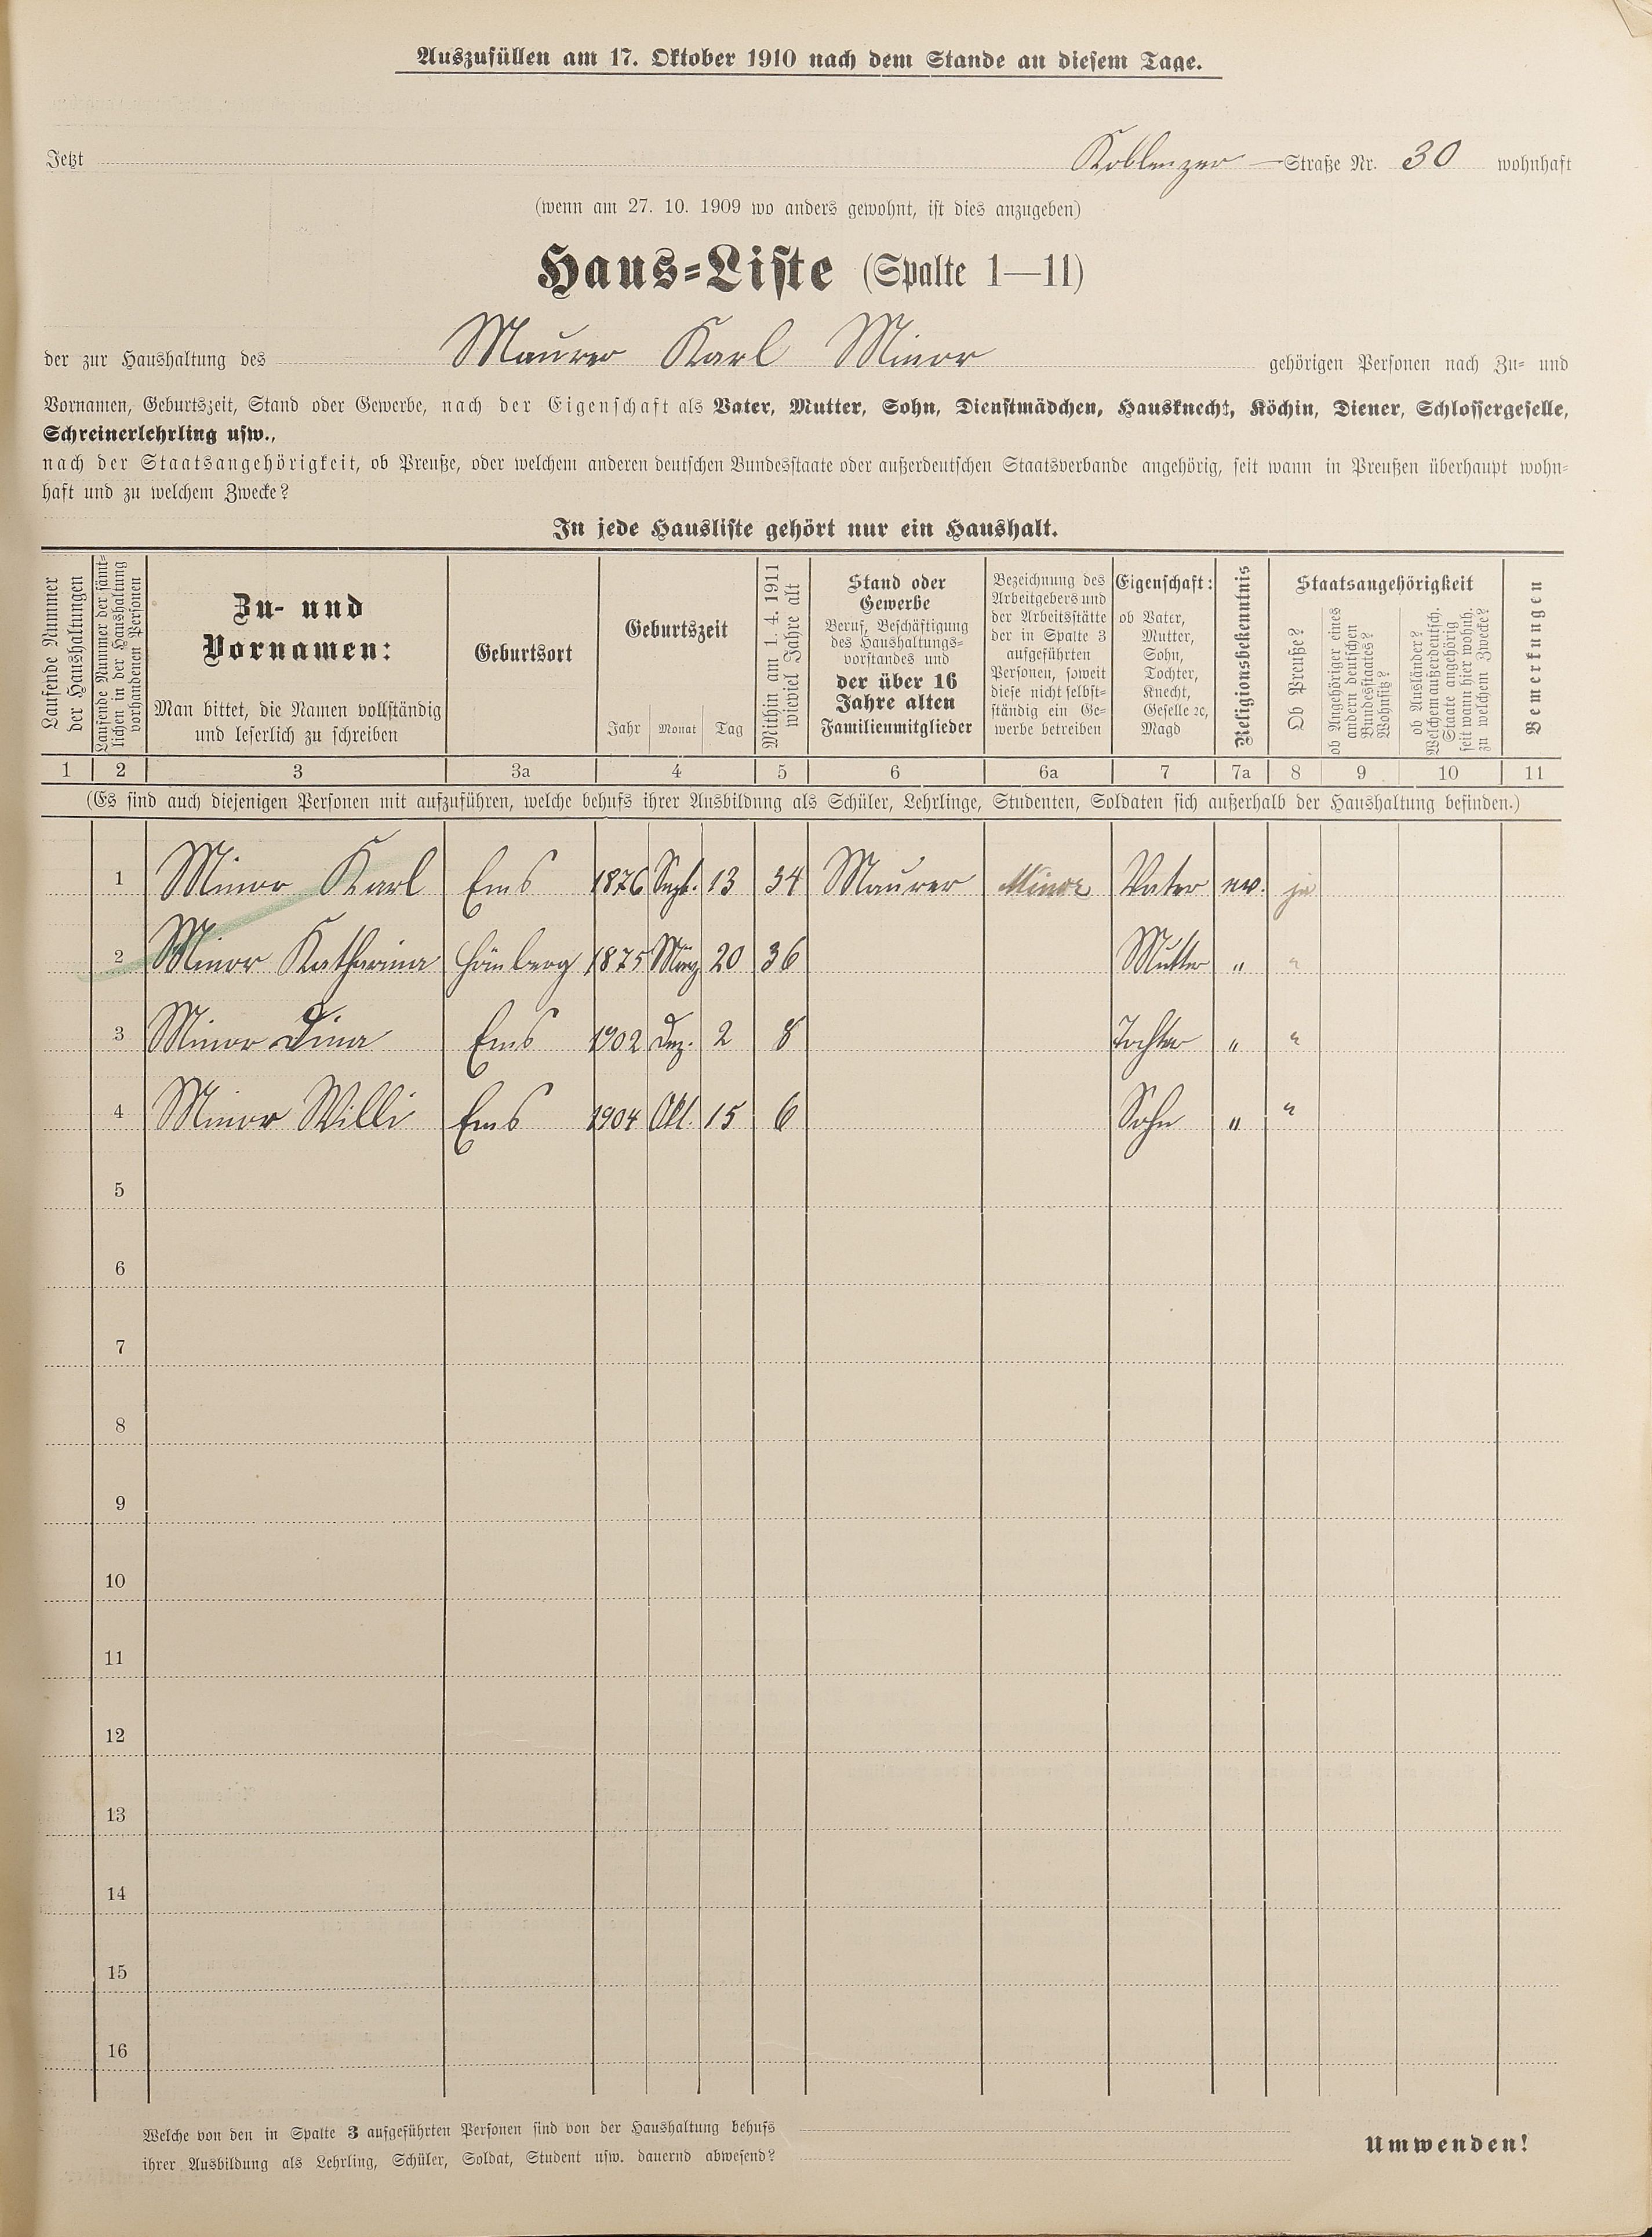 Auszufüllen am 17. Oktober 1910 nach dem Stande an diesem Tage.
Jetzt Koblenzer -Straße Nr. 30 wohnhaft
(wenn am 27. 10. 1909 wo anders gewohnt, ist dies anzugeben)
Haus-Liste (Spalte 1—11)
der zur Haushaltung des Maurer Karl Minor gehörigen Personen nach Zu- und
Vornamen, Geburtszeit, Stand oder Gewerbe, nach der Eigenschaft als Vater, Mutter, Sohn, Dienstmädchen, Hausknecht, Köchin, Diener, Schlossergeselle,
Schreinerlehrling usw.,
nach der Staatsangehörigkeit, ob Preuße, oder welchem anderen deutschen Bundesstaate oder außerdeutschen Staatsverbande angehörig, seit wann in Preußen überhaupt wohn-
haft und zu welchem Zwecke?
In jede Hausliste gehört nur ein Haushalt.
Laufende Nummer
der Haushaltungen
Laufende Nummer der sämt-
lichen in der Haushaltung
vorhandenen Personen
Zu- und
Vornamen:
Man bittet, die Namen vollständig
und leserlich zu schreiben
Geburtsort
Geburtszeit
Jahr Monat Tag
Mithin am 1. 4. 1911
wieviel Jahre alt
Stand oder
Gewerbe
Beruf, Beschäftigung
des Haushaltungs-
vorstandes und
der über 16
Jahre alten
Familienmitglieder
Bezeichnung des
Arbeitgebers und
der Arbeitsstätte
der in Spalte 3
aufgeführten
Personen, soweit
diese nicht selbst-
ständig ein Ge-
werbe betreiben
Eigenschaft:
ob Vater,
Mutter,
Sohn,
Tochter,
Knecht,
Geselle ꝛc,
Magd
Religionsbekenntnis
Staatsangehörigkeit
Ob Preuße?
ob Angehöriger eines
andern deutschen
Bundesstaates?
Wohnsitz?
ob Ausländer?
Welchem außerdeutsch.
Staate angehörig
seit wann hier wohnh.
zu welchem Zwecke?
Bemerkungen
1 2 3 3a 4 5 6 6a 7 7a 8 9 10 11
(Es sind auch diejenigen Personen mit aufzuführen, welche behufs ihrer Ausbildung als Schüler, Lehrlinge, Studenten, Soldaten sich außerhalb der Haushaltung befinden.)
1 Minor Karl Ems 1876 Sept. 13 34 Maurer Minor Vater ev. ja
2 Minor Katharina 1875 März 20 36 Mutter " "
3 Minor Dina Ems 1902 Dez. 2 8 Tochter " "
4 Minor Willi Ems 1904 Okt. 15 6 Sohn " "
5
6
7
8
9
10
11
12
13
14
15
16
Welche von den in Spalte 3 aufgeführten Personen sind von der Haushaltung behufs
ihrer Ausbildung als Lehrling, Schüler, Soldat, Student usw. dauernd abwesend?
Umwenden!